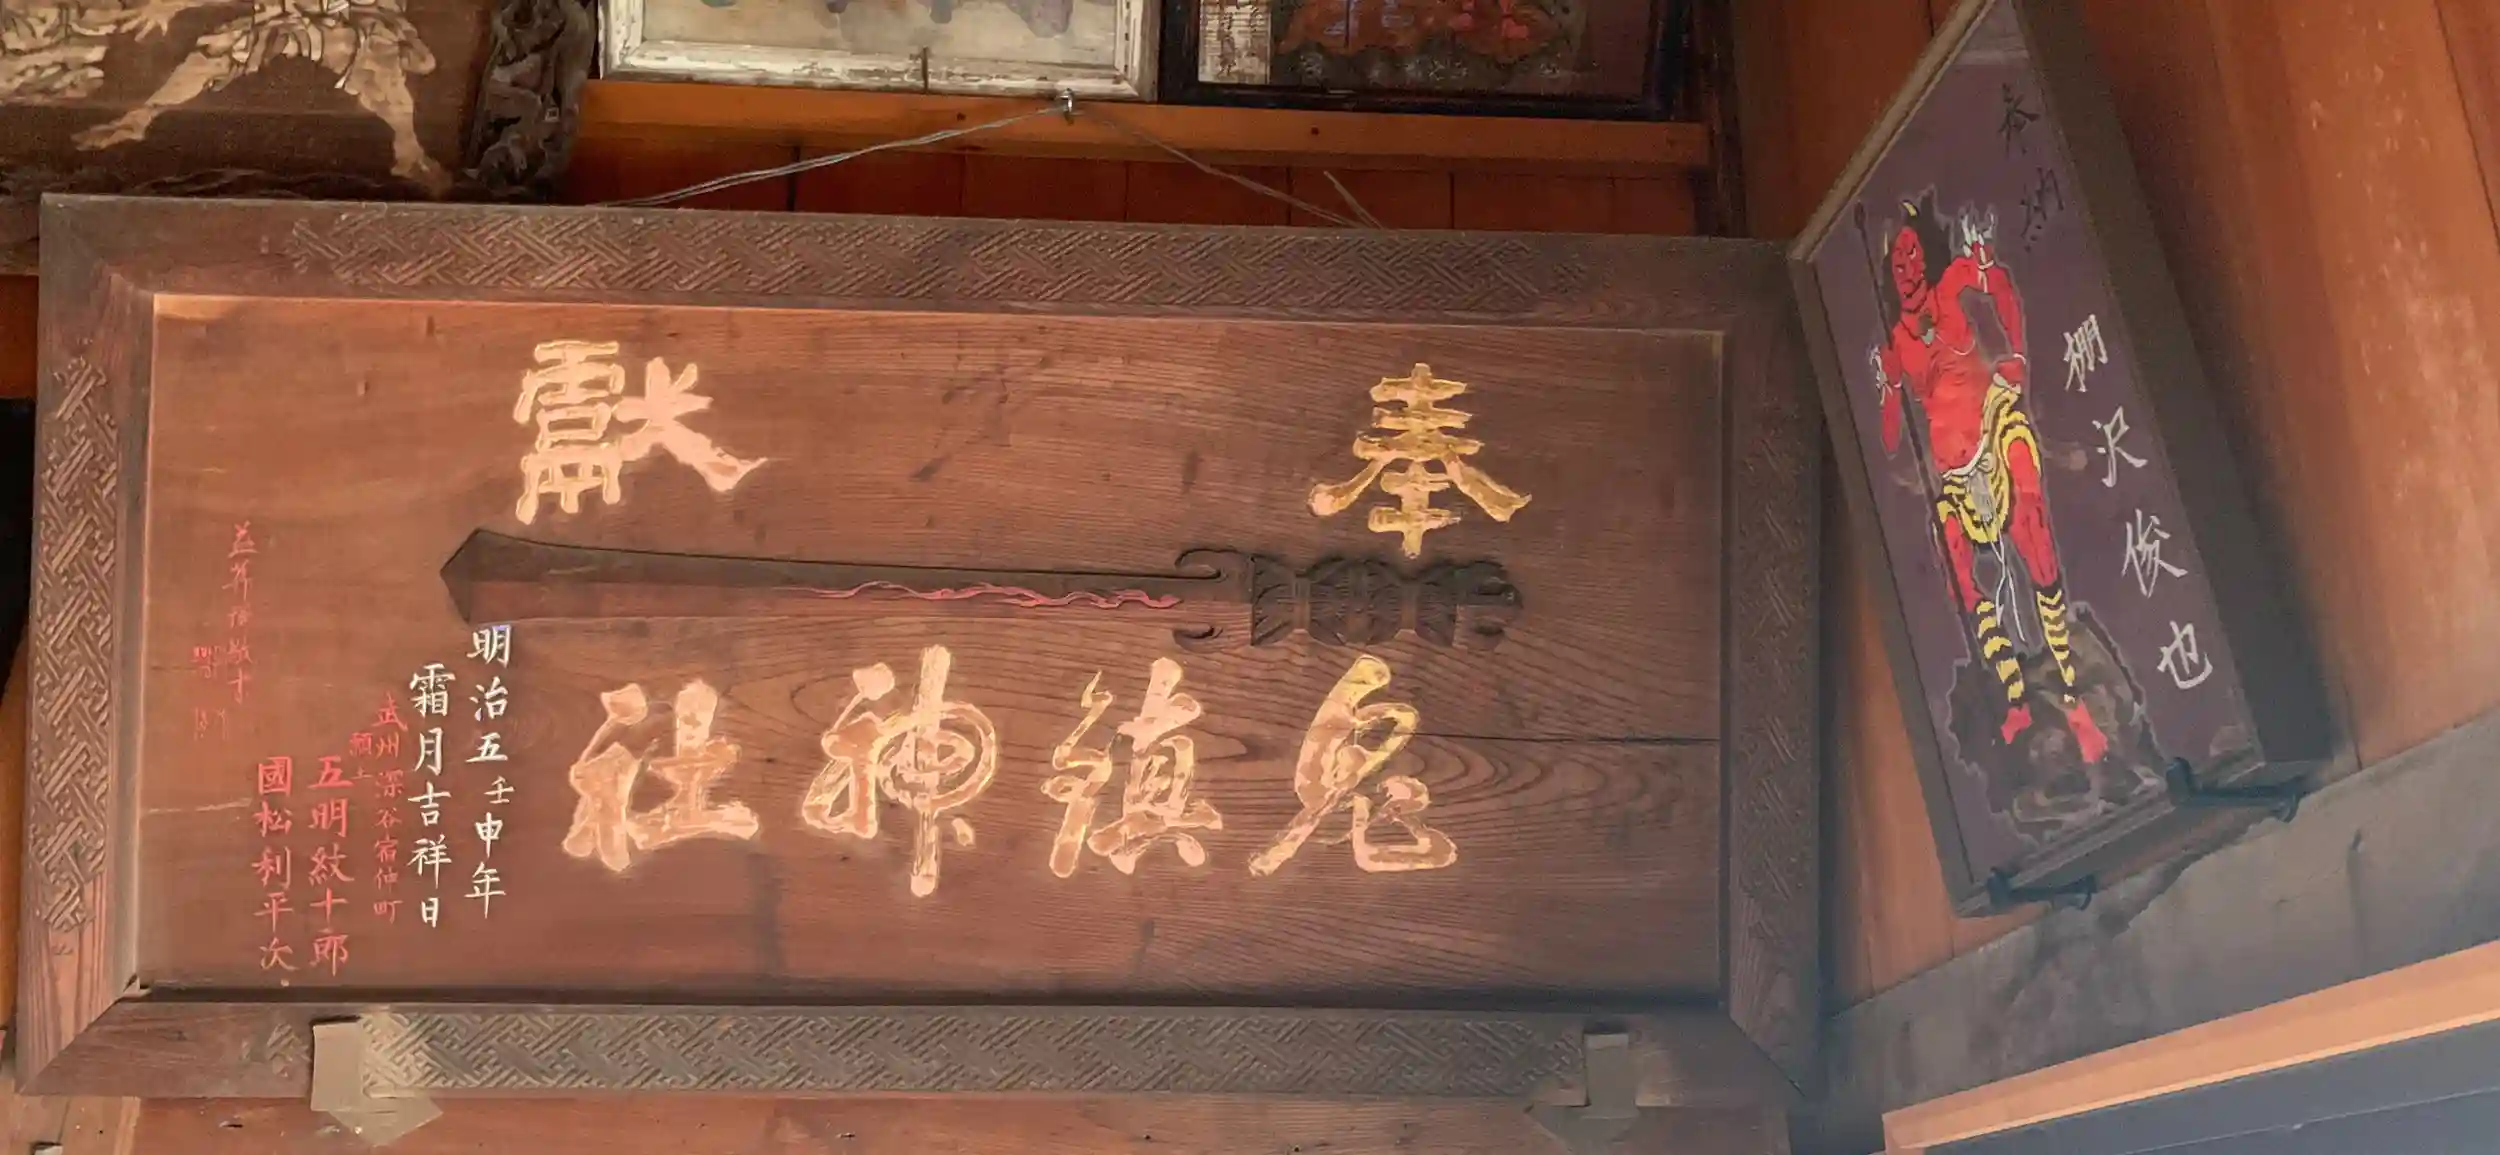 奉獻
鬼鎮神社
明治五壬申年
霜月吉祥日
武州深谷宿仲町
願主
五明紋十郎
國松利平次
奉納
棚沢俊也